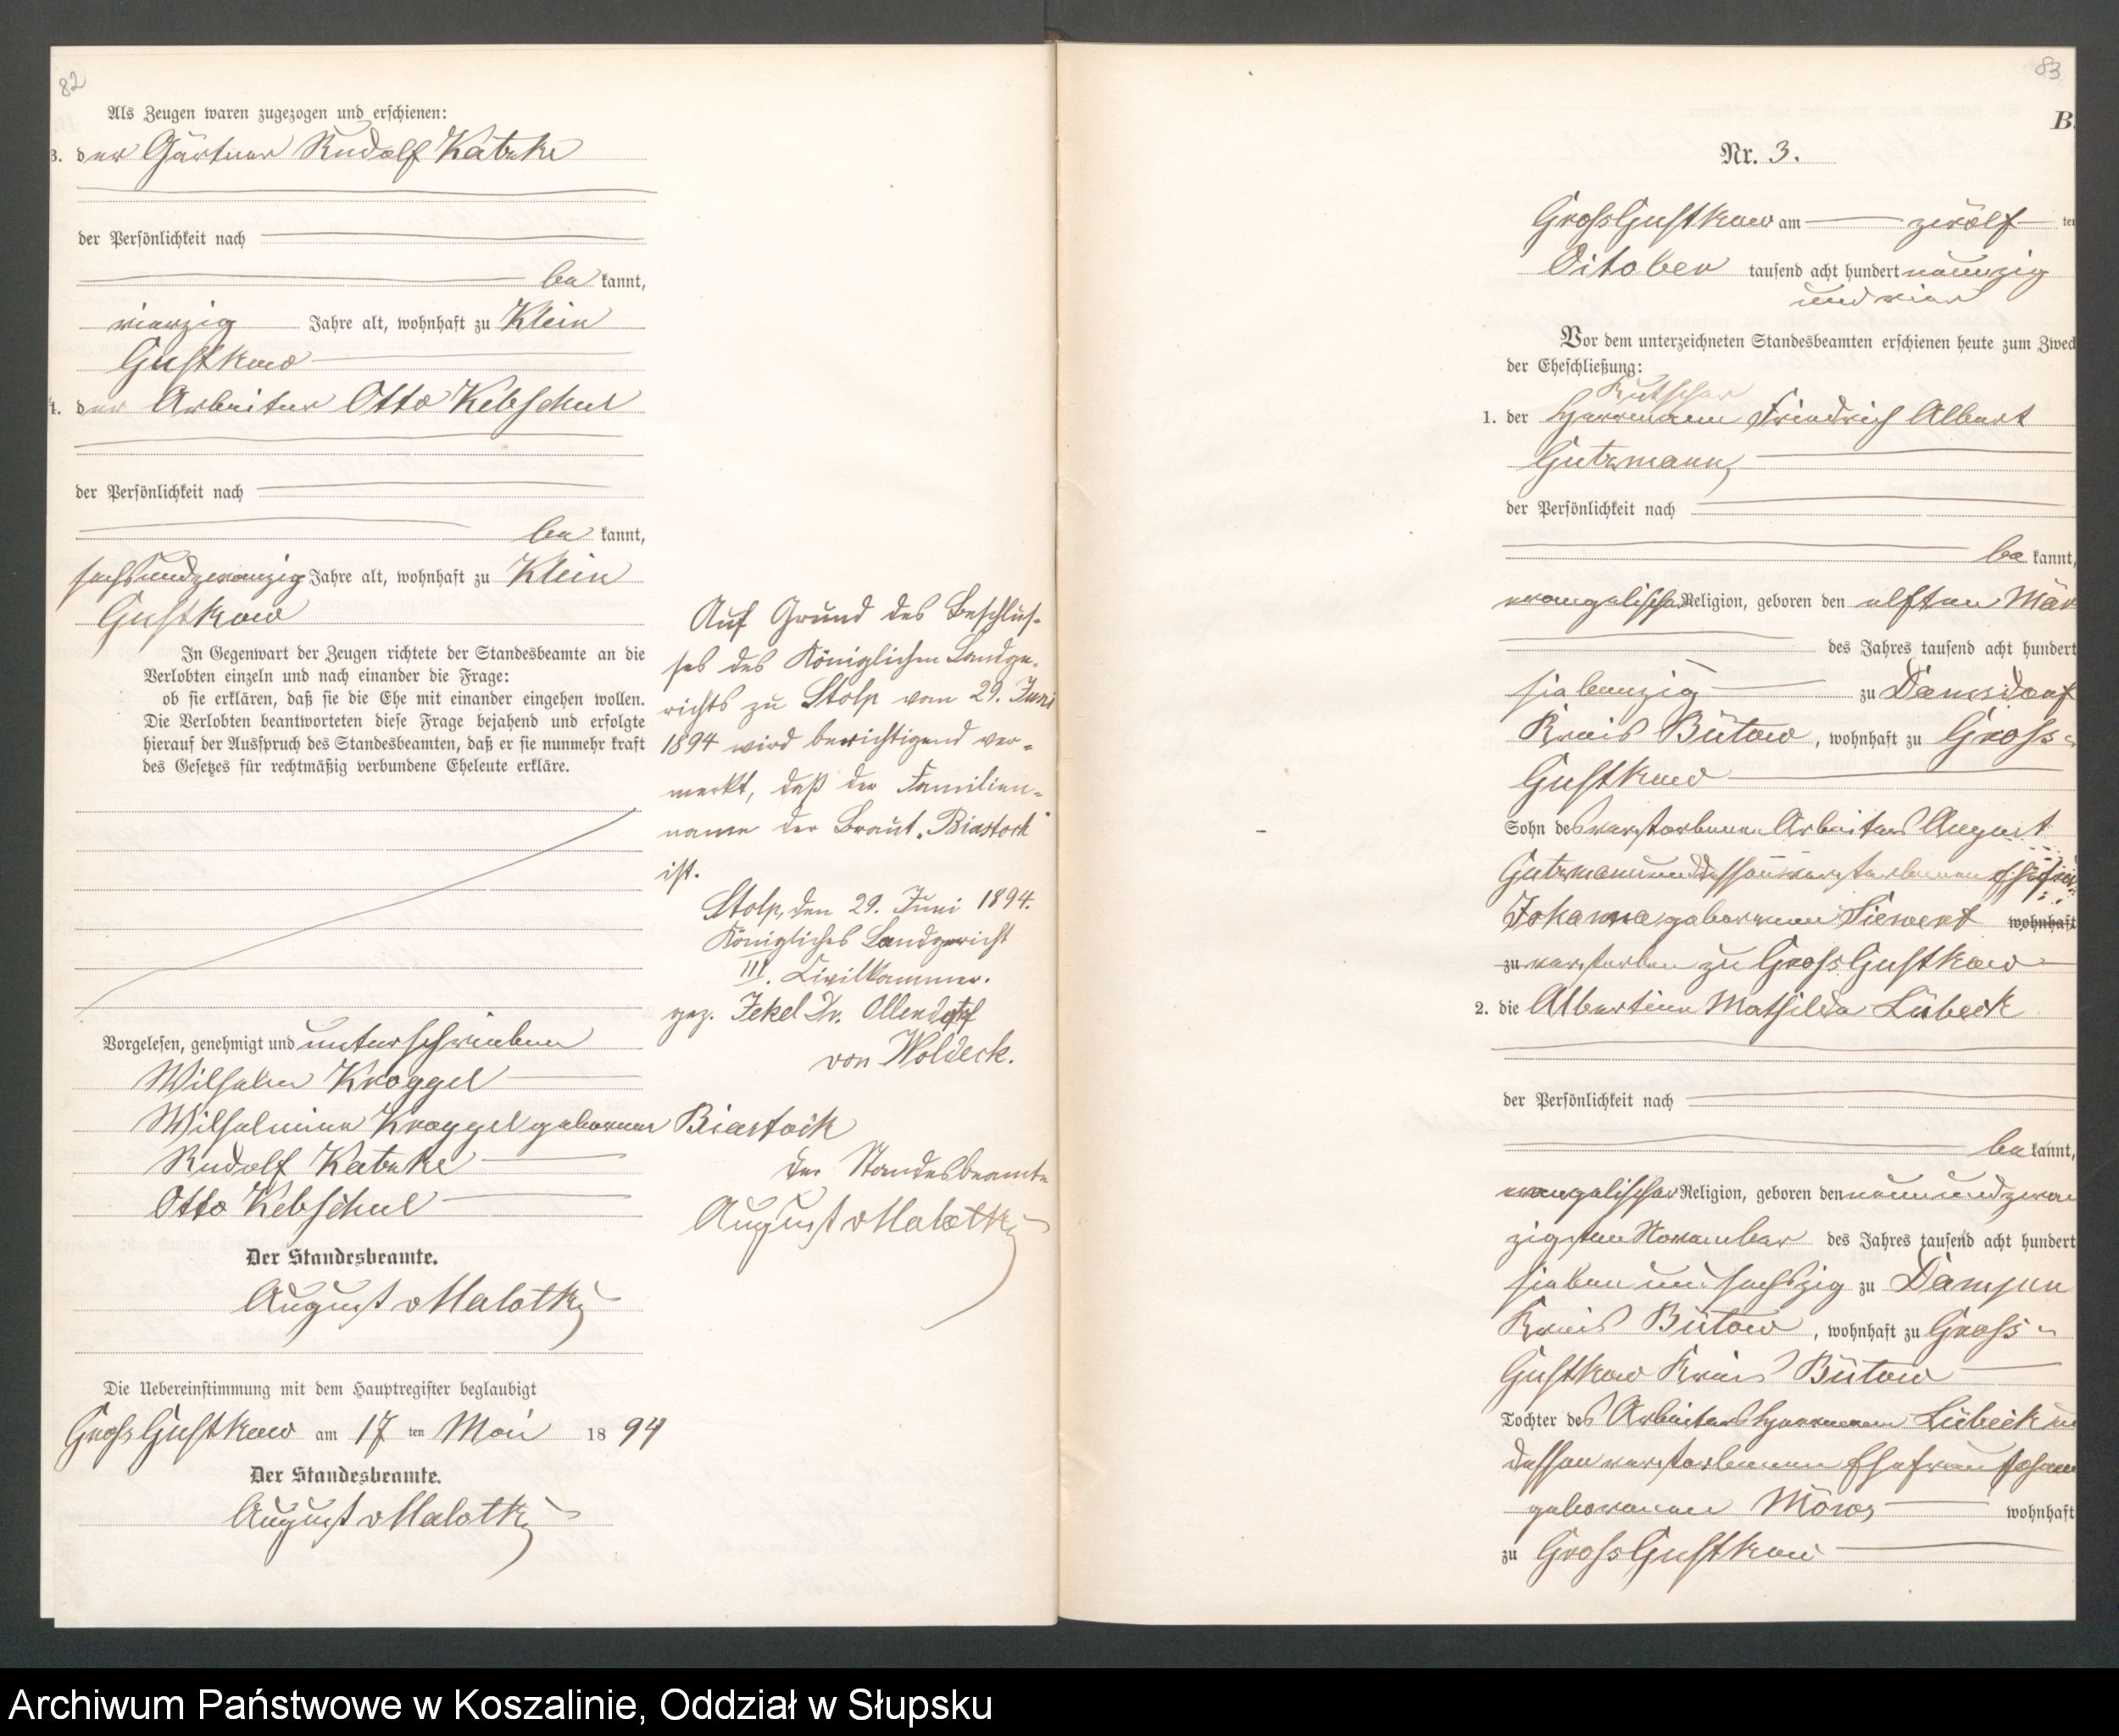 82
Als Zeugen waren zugezogen und erschienen:
3. der Gärtner Rudolf Katzke
der Persönlichkeit nach
be kannt,
vierzig Jahre alt, wohnhaft zu Klein
Gustkow
4. der Arbeiter Otto Kebschul
der Persönlichkeit nach
be kannt,
sechsundzwanzig Jahre alt, wohnhaft zu Klein
Gustkow
In Gegenwart der Zeugen richtete der Standesbeamte an die
Verlobten einzeln und nach einander die Frage:
ob sie erklären, daß sie die Ehe mit einander eingehen wollen.
Die Verlobten beantworteten diese Frage bejahend und erfolgte
hierauf der Ausspruch des Standesbeamten, daß er sie nunmehr kraft
des Gesetzes für rechtmäßig verbundene Eheleute erkläre.
Vorgelesen, genehmigt und unterschrieben
Wilhelm Kroggel
Wilhelmine Kroggel geborene Biastock
Rudolf Katzke
Otto Kebschul
Der Standesbeamte.
August v Malotky
Die Uebereinstimmung mit dem Hauptregister beglaubigt
Gross Gustkow am 17 ten Mai 18 94
Der Standesbeamte.
August v Malotky
Auf Grund des Beschlus-
ses des Königlichen Landge-
richts zu Stolp vom 29. Juni
1894 wird berichtigend ver-
merkt, daß der Familien-
name der Braut „Biastock"
ist.
Stolp, den 29. Juni 1894.
Königliches Landgericht
III. Civilkammer.
gez. Jekel Dr. Ollendorff
von Woldeck.
Der Standesbeamte
August v Malotky
83
B.
Nr. 3.
Gross Gustkow am zwölf ten
October tausend acht hundert neunzig
und vier
Vor dem unterzeichneten Standesbeamten erschienen heute zum Zweck
der Eheschließung:
Kutscher
1. der Herrmann Friedrich Albert
Gutzmann,
der Persönlichkeit nach
be kannt,
evangelischer Religion, geboren den elften Mär
des Jahres tausend acht hundert
siebenzig zu Damsdorf
Kreis Bütow, wohnhaft zu Gross-
Gustkow
Sohn des verstorbenen Arbeiters August
Gutzmann und dessen verstorbenen Ehefrau
Johanna geborenen Siewert wohnhaft
zu verstorben zu Gross Gustkow
2. die Albertine Mathilde Lübeck
der Persönlichkeit nach
be kannt,
evangelischer Religion, geboren den neunundzwan
zigsten November des Jahres tausend acht hundert
sieben und sechszig zu Dampen
Kreis Bütow, wohnhaft zu Gross-
Gustkow Kreis Bütow
Tochter des Arbeiters Herrmann Lübeck un
dessen verstorbenen Ehefrau Johann
geborenen wohnhaft
zu Gross Gustkow
Archiwum Państwowe w Koszalinie, Oddział w Słupsku